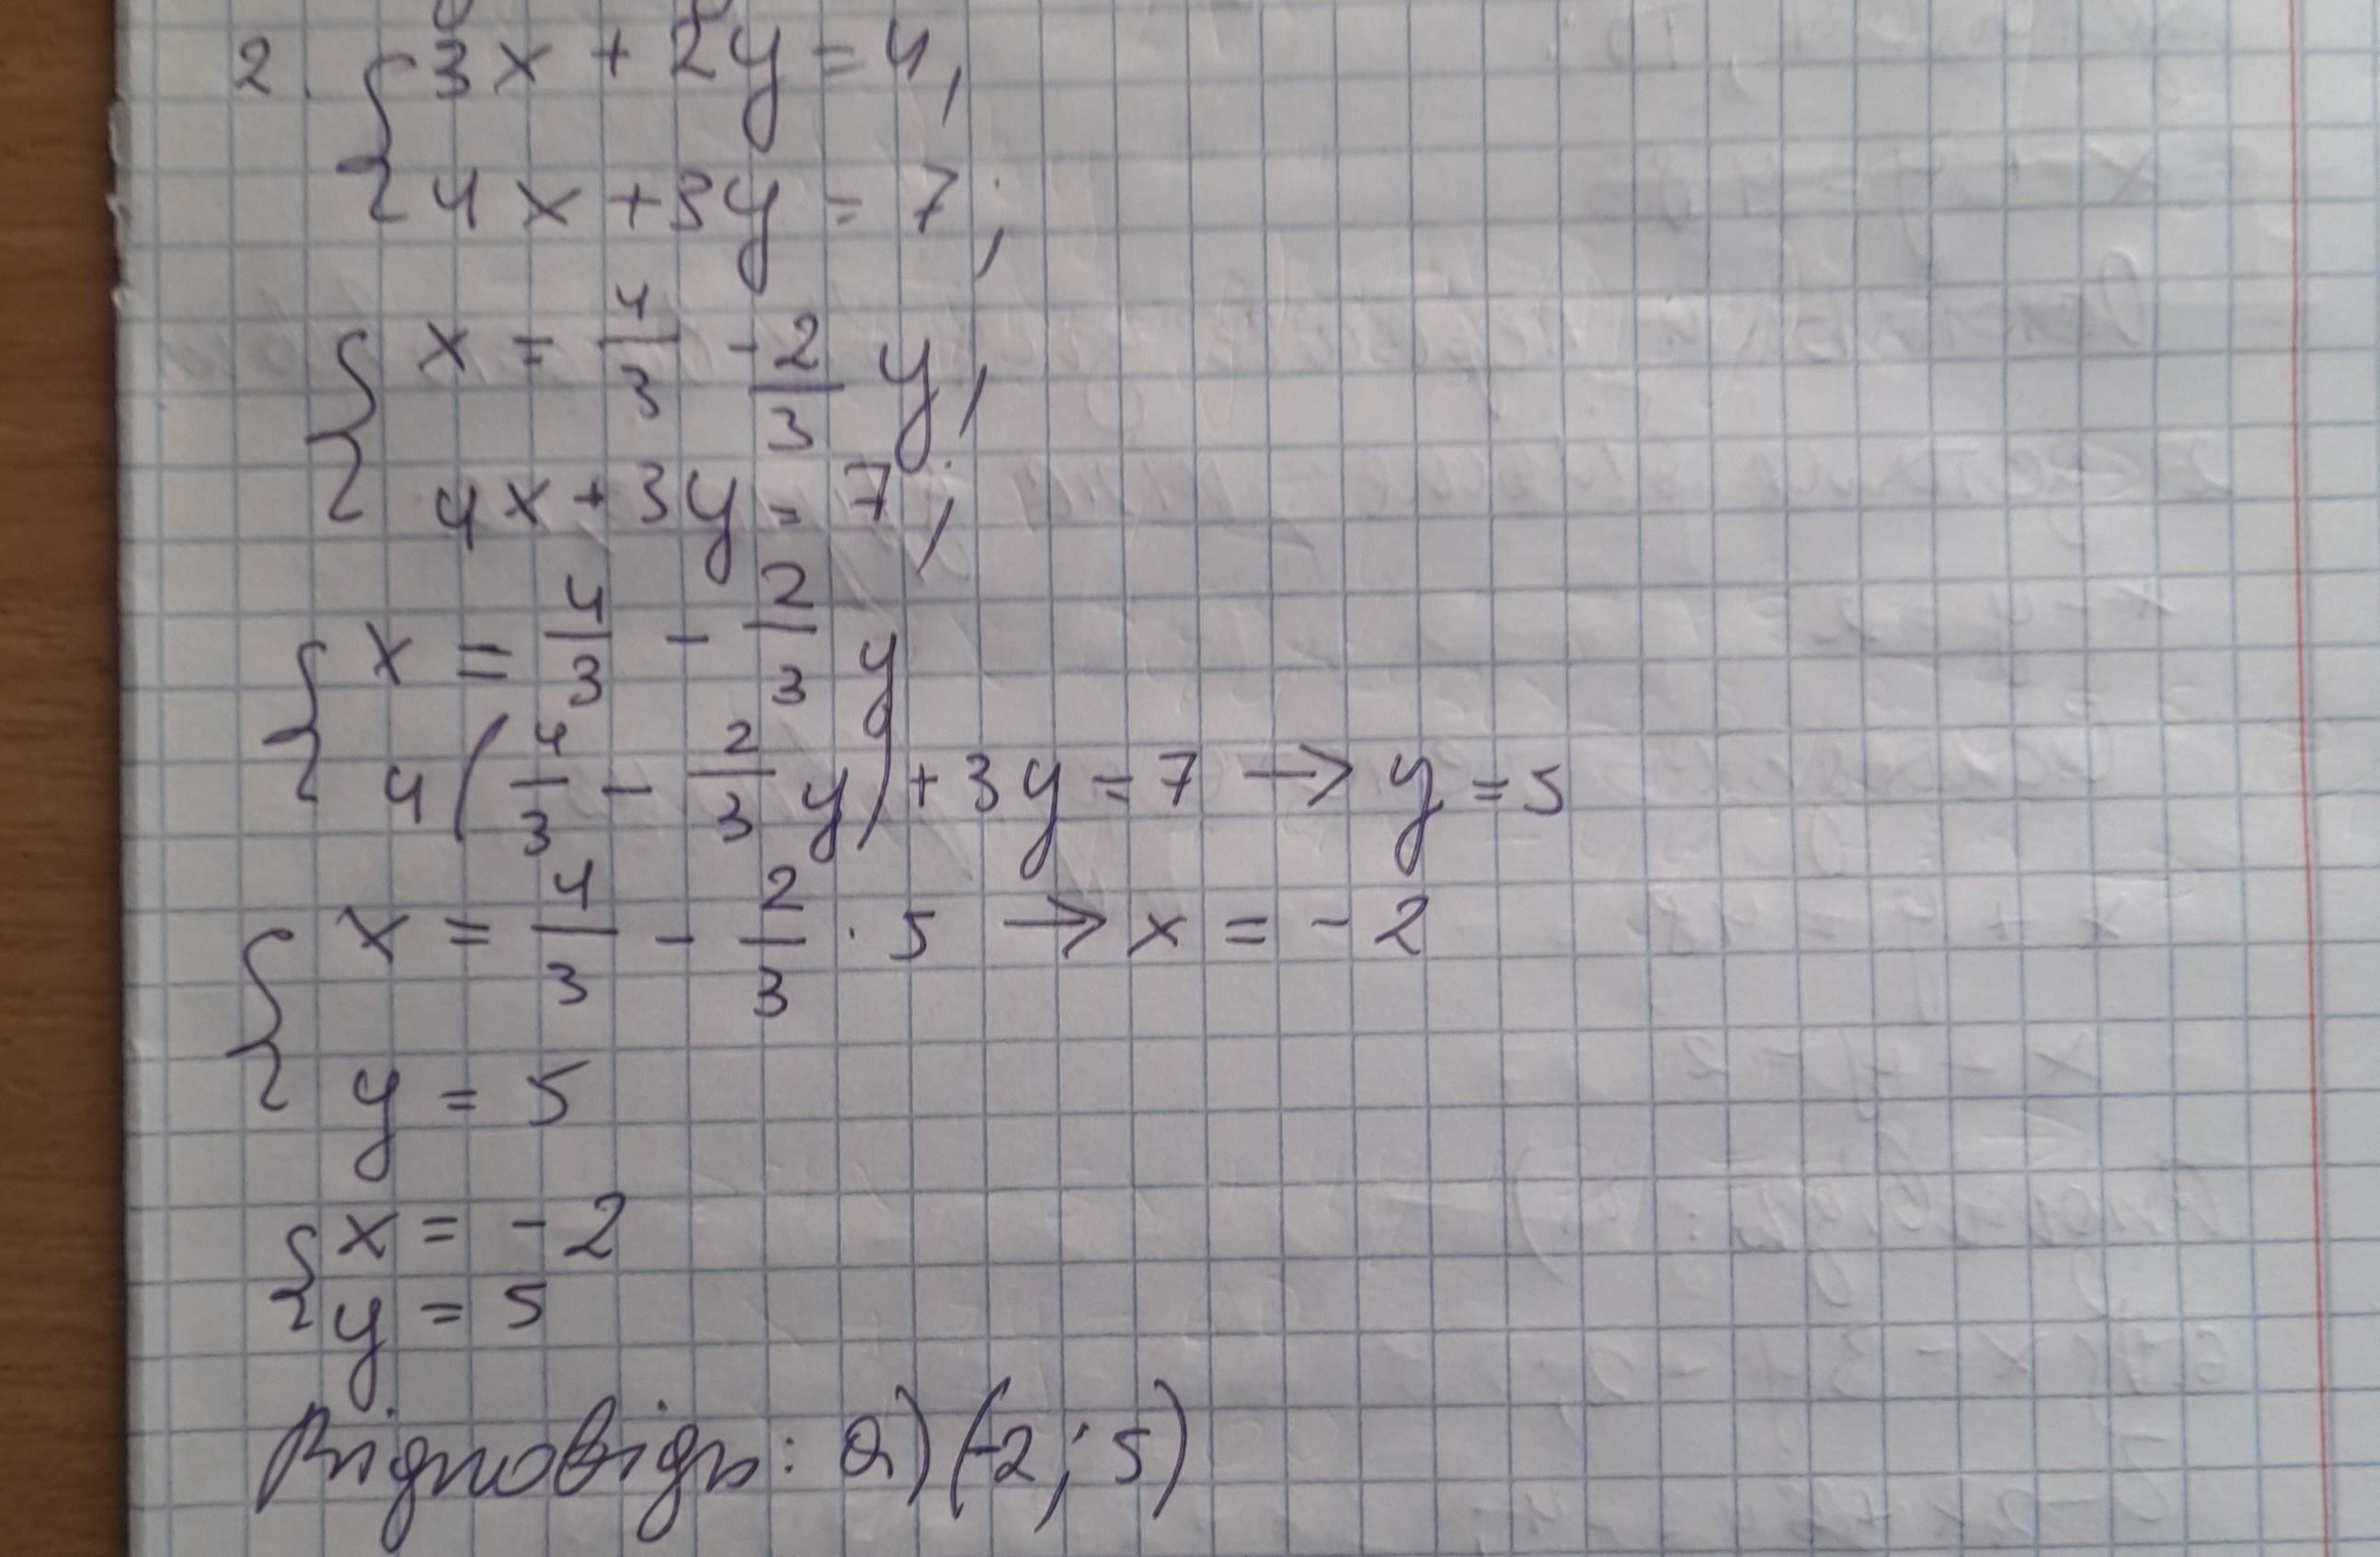 2. { 3x + 2y = 4,
4x + 3y = 7;
{ x = 4/3 - 2/3 y,
4x + 3y = 7;
{ x = 4/3 - 2/3 y
4(4/3 - 2/3 y) + 3y = 7 → y = 5
{ x = 4/3 - 2/3 · 5 → x = -2
y = 5
{ x = -2
y = 5
Відповідь: а) (-2; 5)